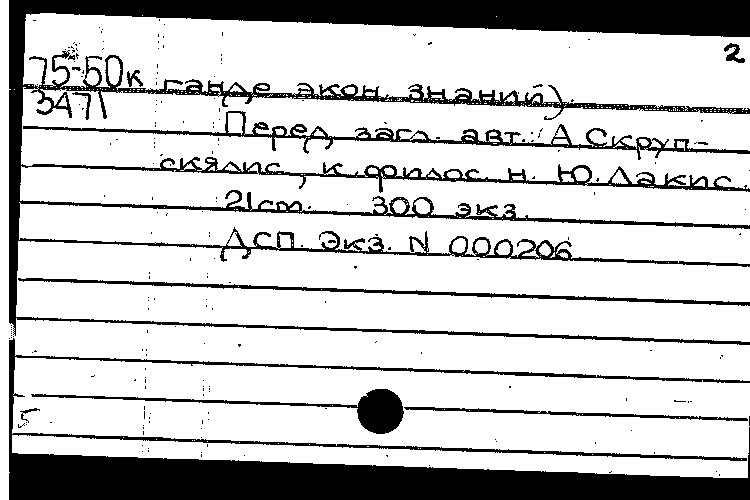 2
75-50к ганде экон. знаний)
3471
Перед загл. авт.: А. Скруп-
скялис, к. филос. н. Ю. Лакис.
21 cm. 300 экз.
ДСП. Экз. N 000206
5